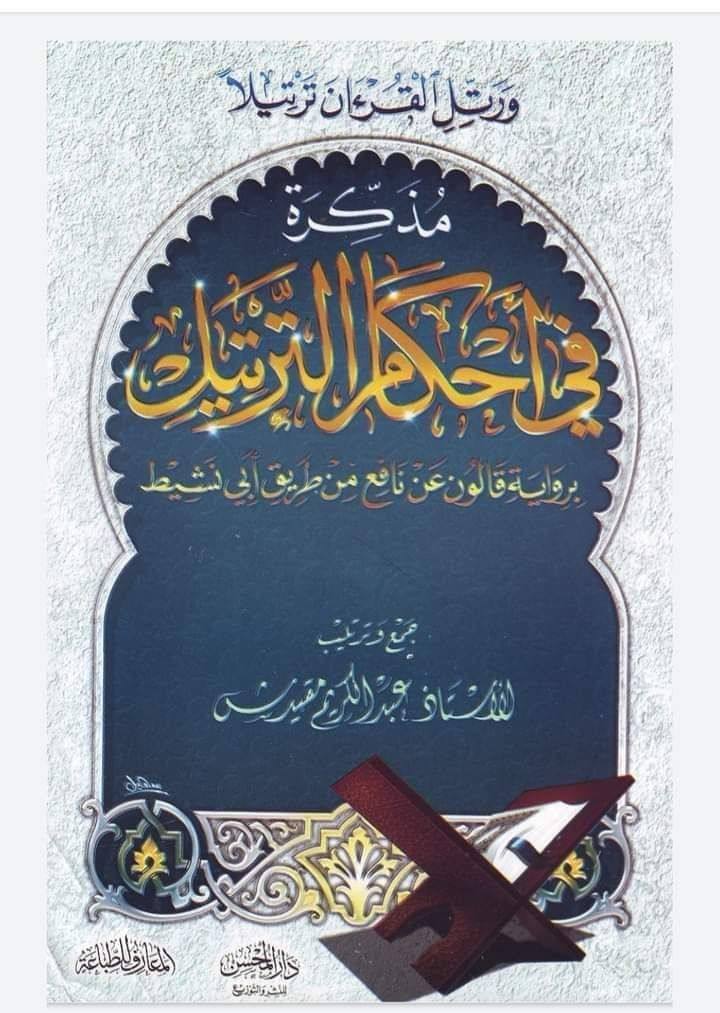 وَرَتِّلِ الْقُرْءَانَ تَرْتِيلاً
مُذَكِّرَة
فِي أَحْكَامِ التَّرْتِيلِ
بِرِوَايَةِ قَالُون عَنْ نَافِع مِنْ طَرِيقِ أَبِي نَشِيط
جمع وترتيب
الأستاذ عبد الكريم مقيدش
دار المحسن
للنشر والتوزيع
المعارف للطباعة